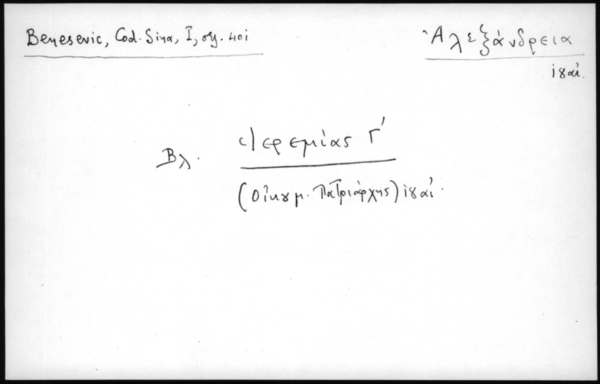 Benesevic, Cod. Sina, I, σγ. 401
Ἀλεξάνδρεια
Βλ. Ἱερεμίας Γ'
(Οἰκουμ. Πατριάρχης)